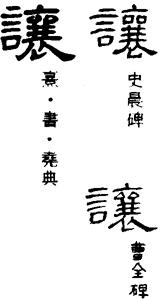 讓
史晨碑
讓
曹全碑
讓
熹·書·堯典